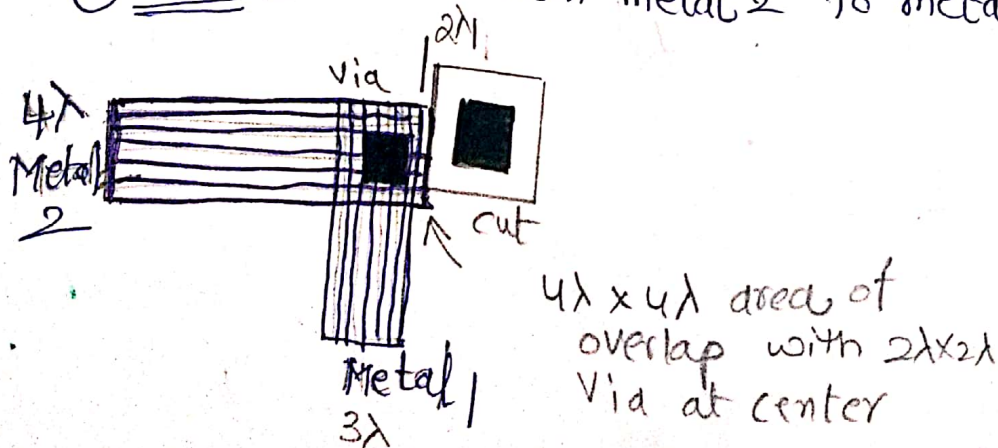 metal 2 to meta
2λ
via
4λ
Metal
2
cut
4λ x 4λ area of
overlap with 2λx2λ
Via at center
Metal 1
3λ